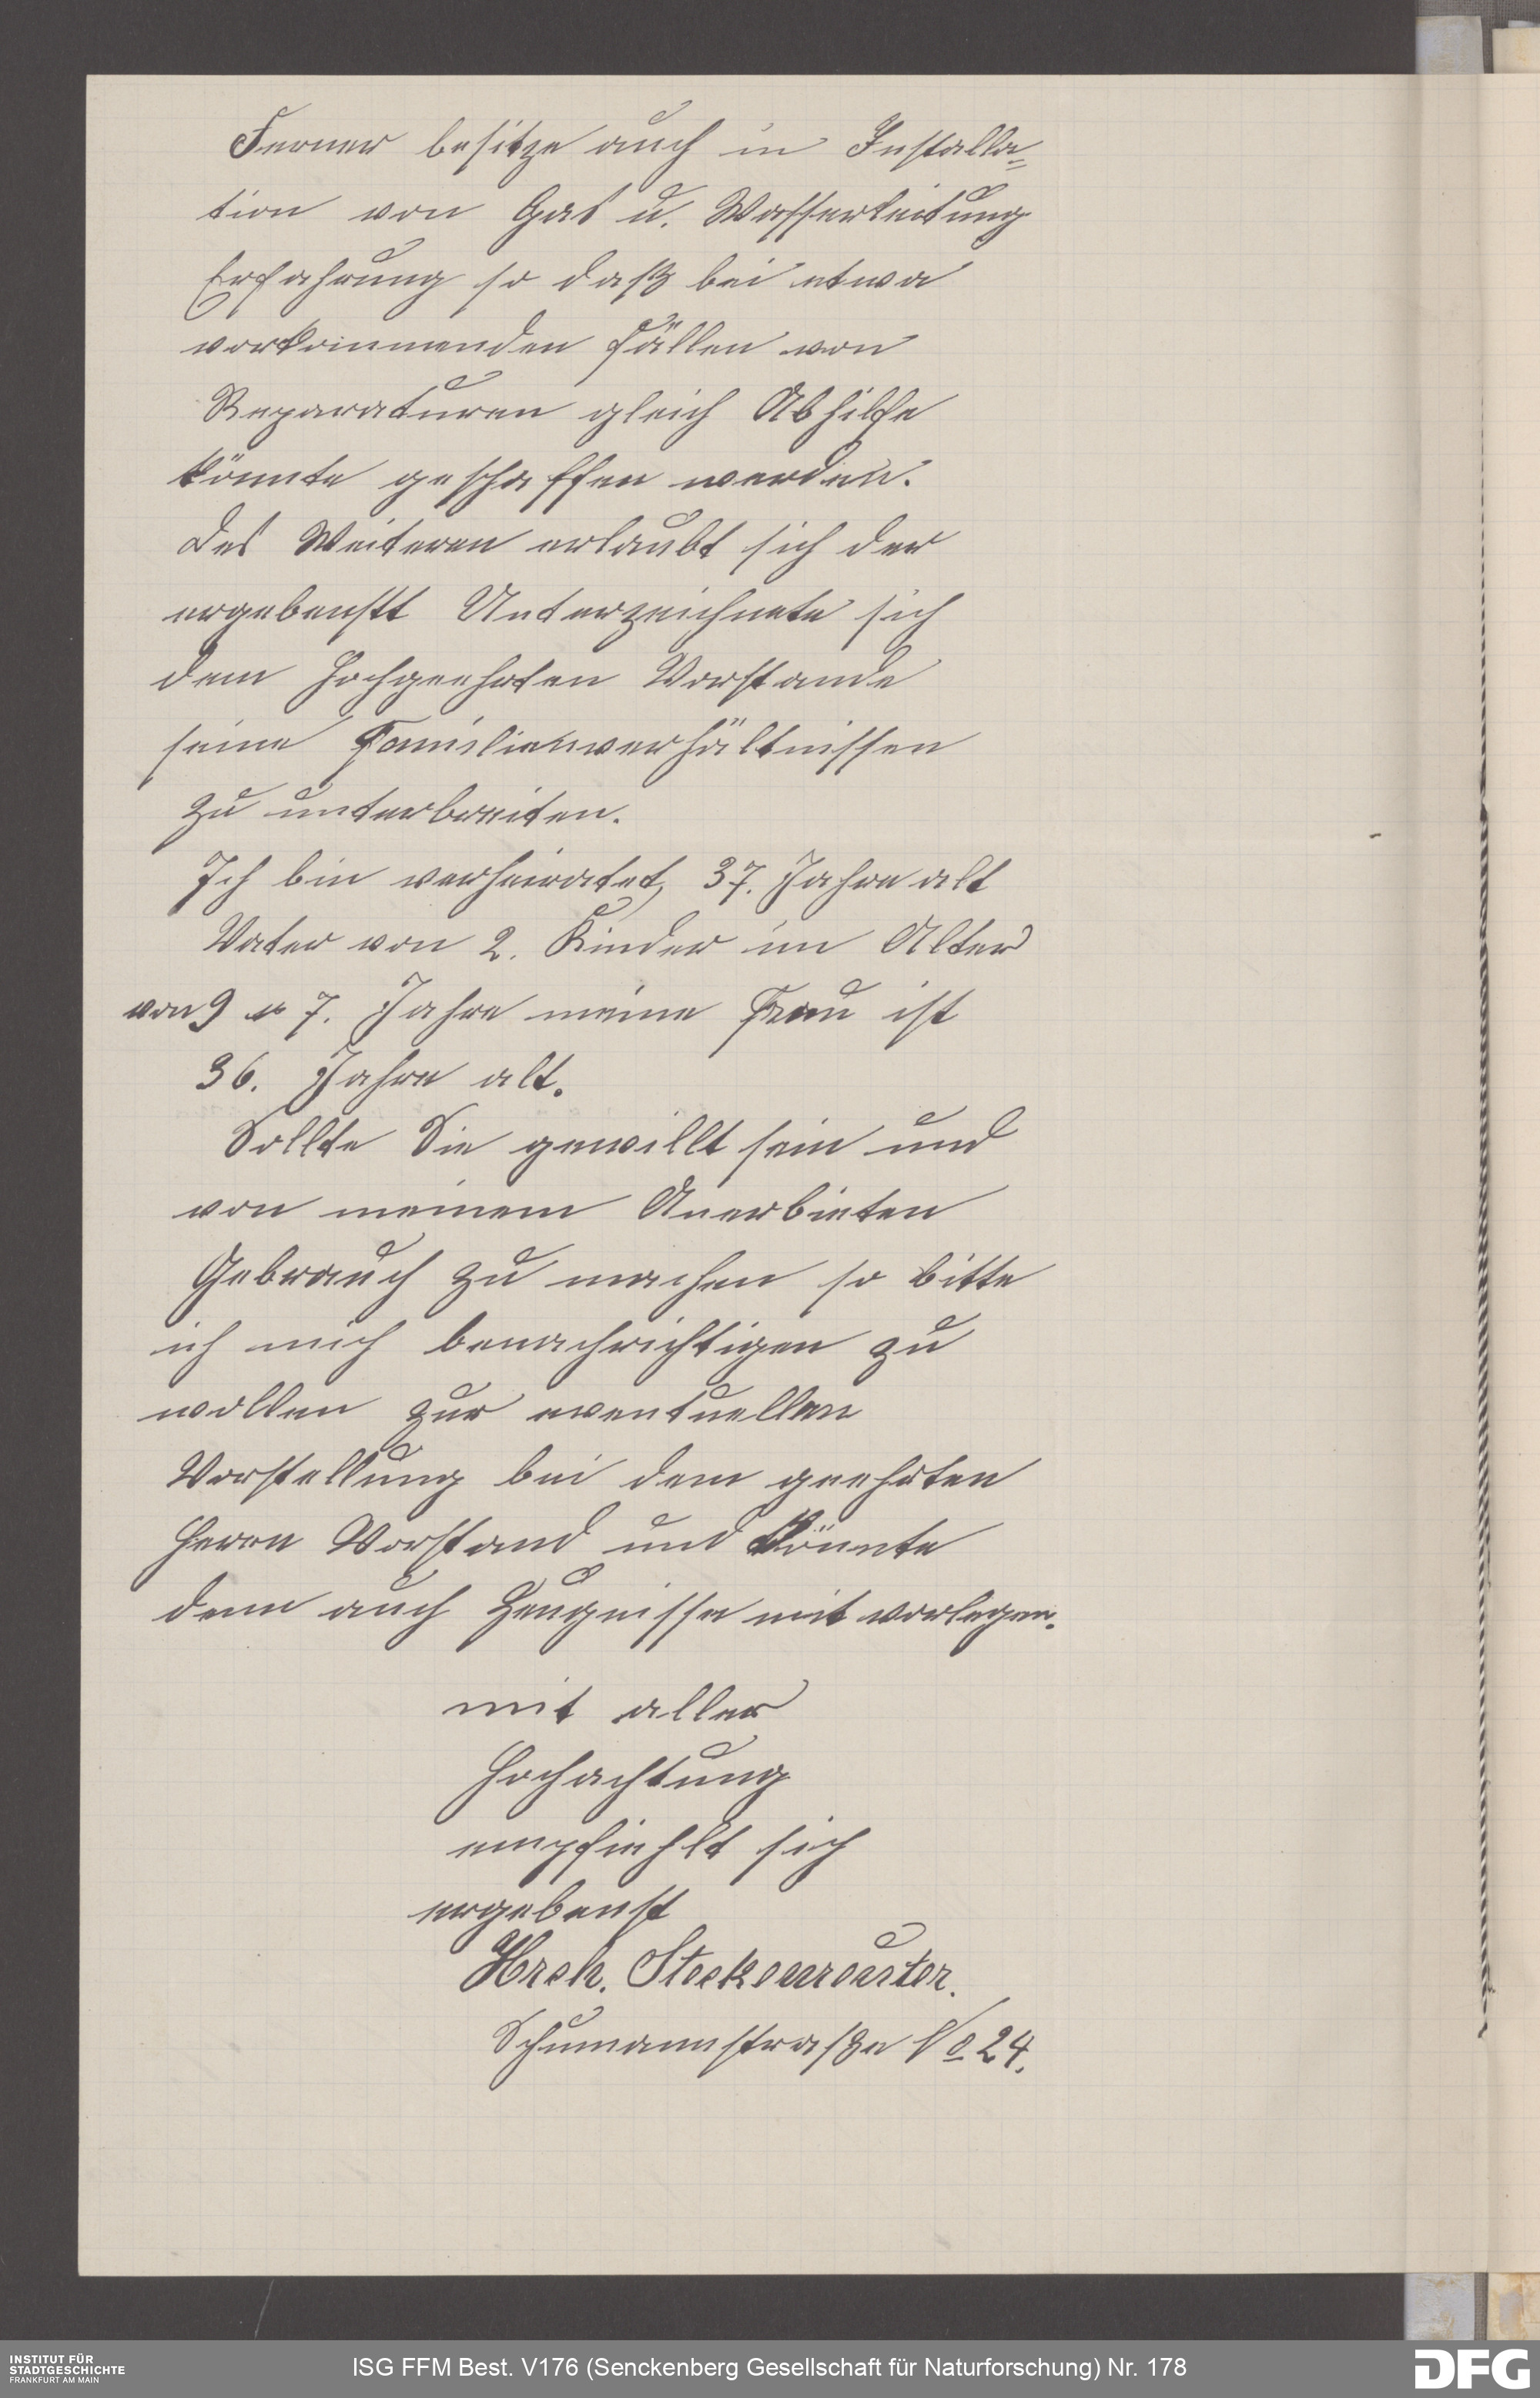 Ferner besitze auch in Installa=
tion von Gas u. Wasserleitung
Erfahrung so daß bei etwa
vorkommenden Fällen von
Reparaturen gleich Abhilfe
könnte geschaffen werden.
Des Weiteren erlaubt sich der
ergebenstt Unterzeichnete sich
dem Hochgeehrten Vorstande
seine Familienverhältnissen
zu unterbreiten.
Ich bin verheiratet, 37. Jahre alt
Vater von 2. Kinder im Alter
von 9 u 7. Jahre meine Frau ist
36. Jahre alt.
Sollte Sie gewillt sein und
von meinem Anerbieten
Gebrauch zu machen so bitte
ich mich benachrichtigen zu
wollen zur eventuellen
Vorstellung bei dem geehrten
Herrn Vorstand und könnte
denn auch Zeugnisse mit vorlegen.
mit aller
Hochachtung
empfiehlt sich
ergebenst
Hrch.
Schumannstraße No 24.
INSTITUT FÜR
STADTGESCHICHTE
FRANKFURT AM MAIN
ISG FFM Best. V176 (Senckenberg Gesellschaft für Naturforschung) Nr. 178
DFG